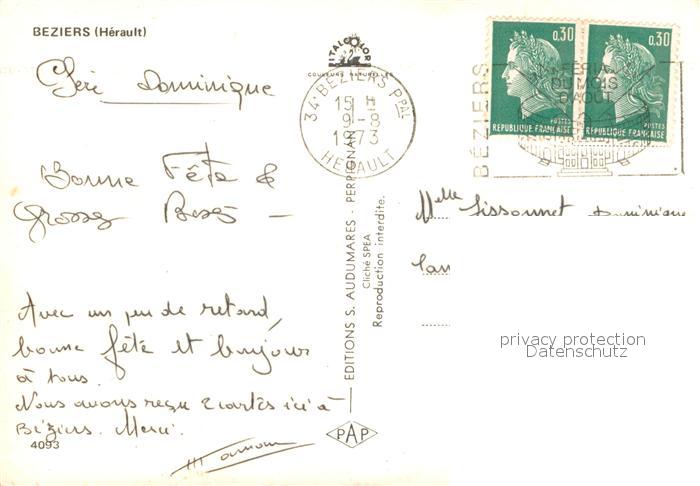 BEZIERS (Hérault)
ITALCOLOR
COULEURS NATURELLES
Dominique
34-BEZIERS PPAL
15 H
9-8
1973
HERAULT
BÉZIERS
FERIA
DU MOIS
D'AOÛT
0,30
POSTES
REPUBLIQUE FRANÇAISE
0,30
POSTES
REPUBLIQUE FRANÇAISE
Bonne Fête &
Grosses
Melle Lissonnet Dominique
EDITIONS S. AUDUMARES - PERPIGNAN
Cliché SPEA
Reproduction interdite.
Avec un peu de retard,
bonne fête et bonjour
à tous.
Nous avons reçu 2 cartes ici à
Béziers. Merci.
4093
PAP
privacy protection
Datenschutz